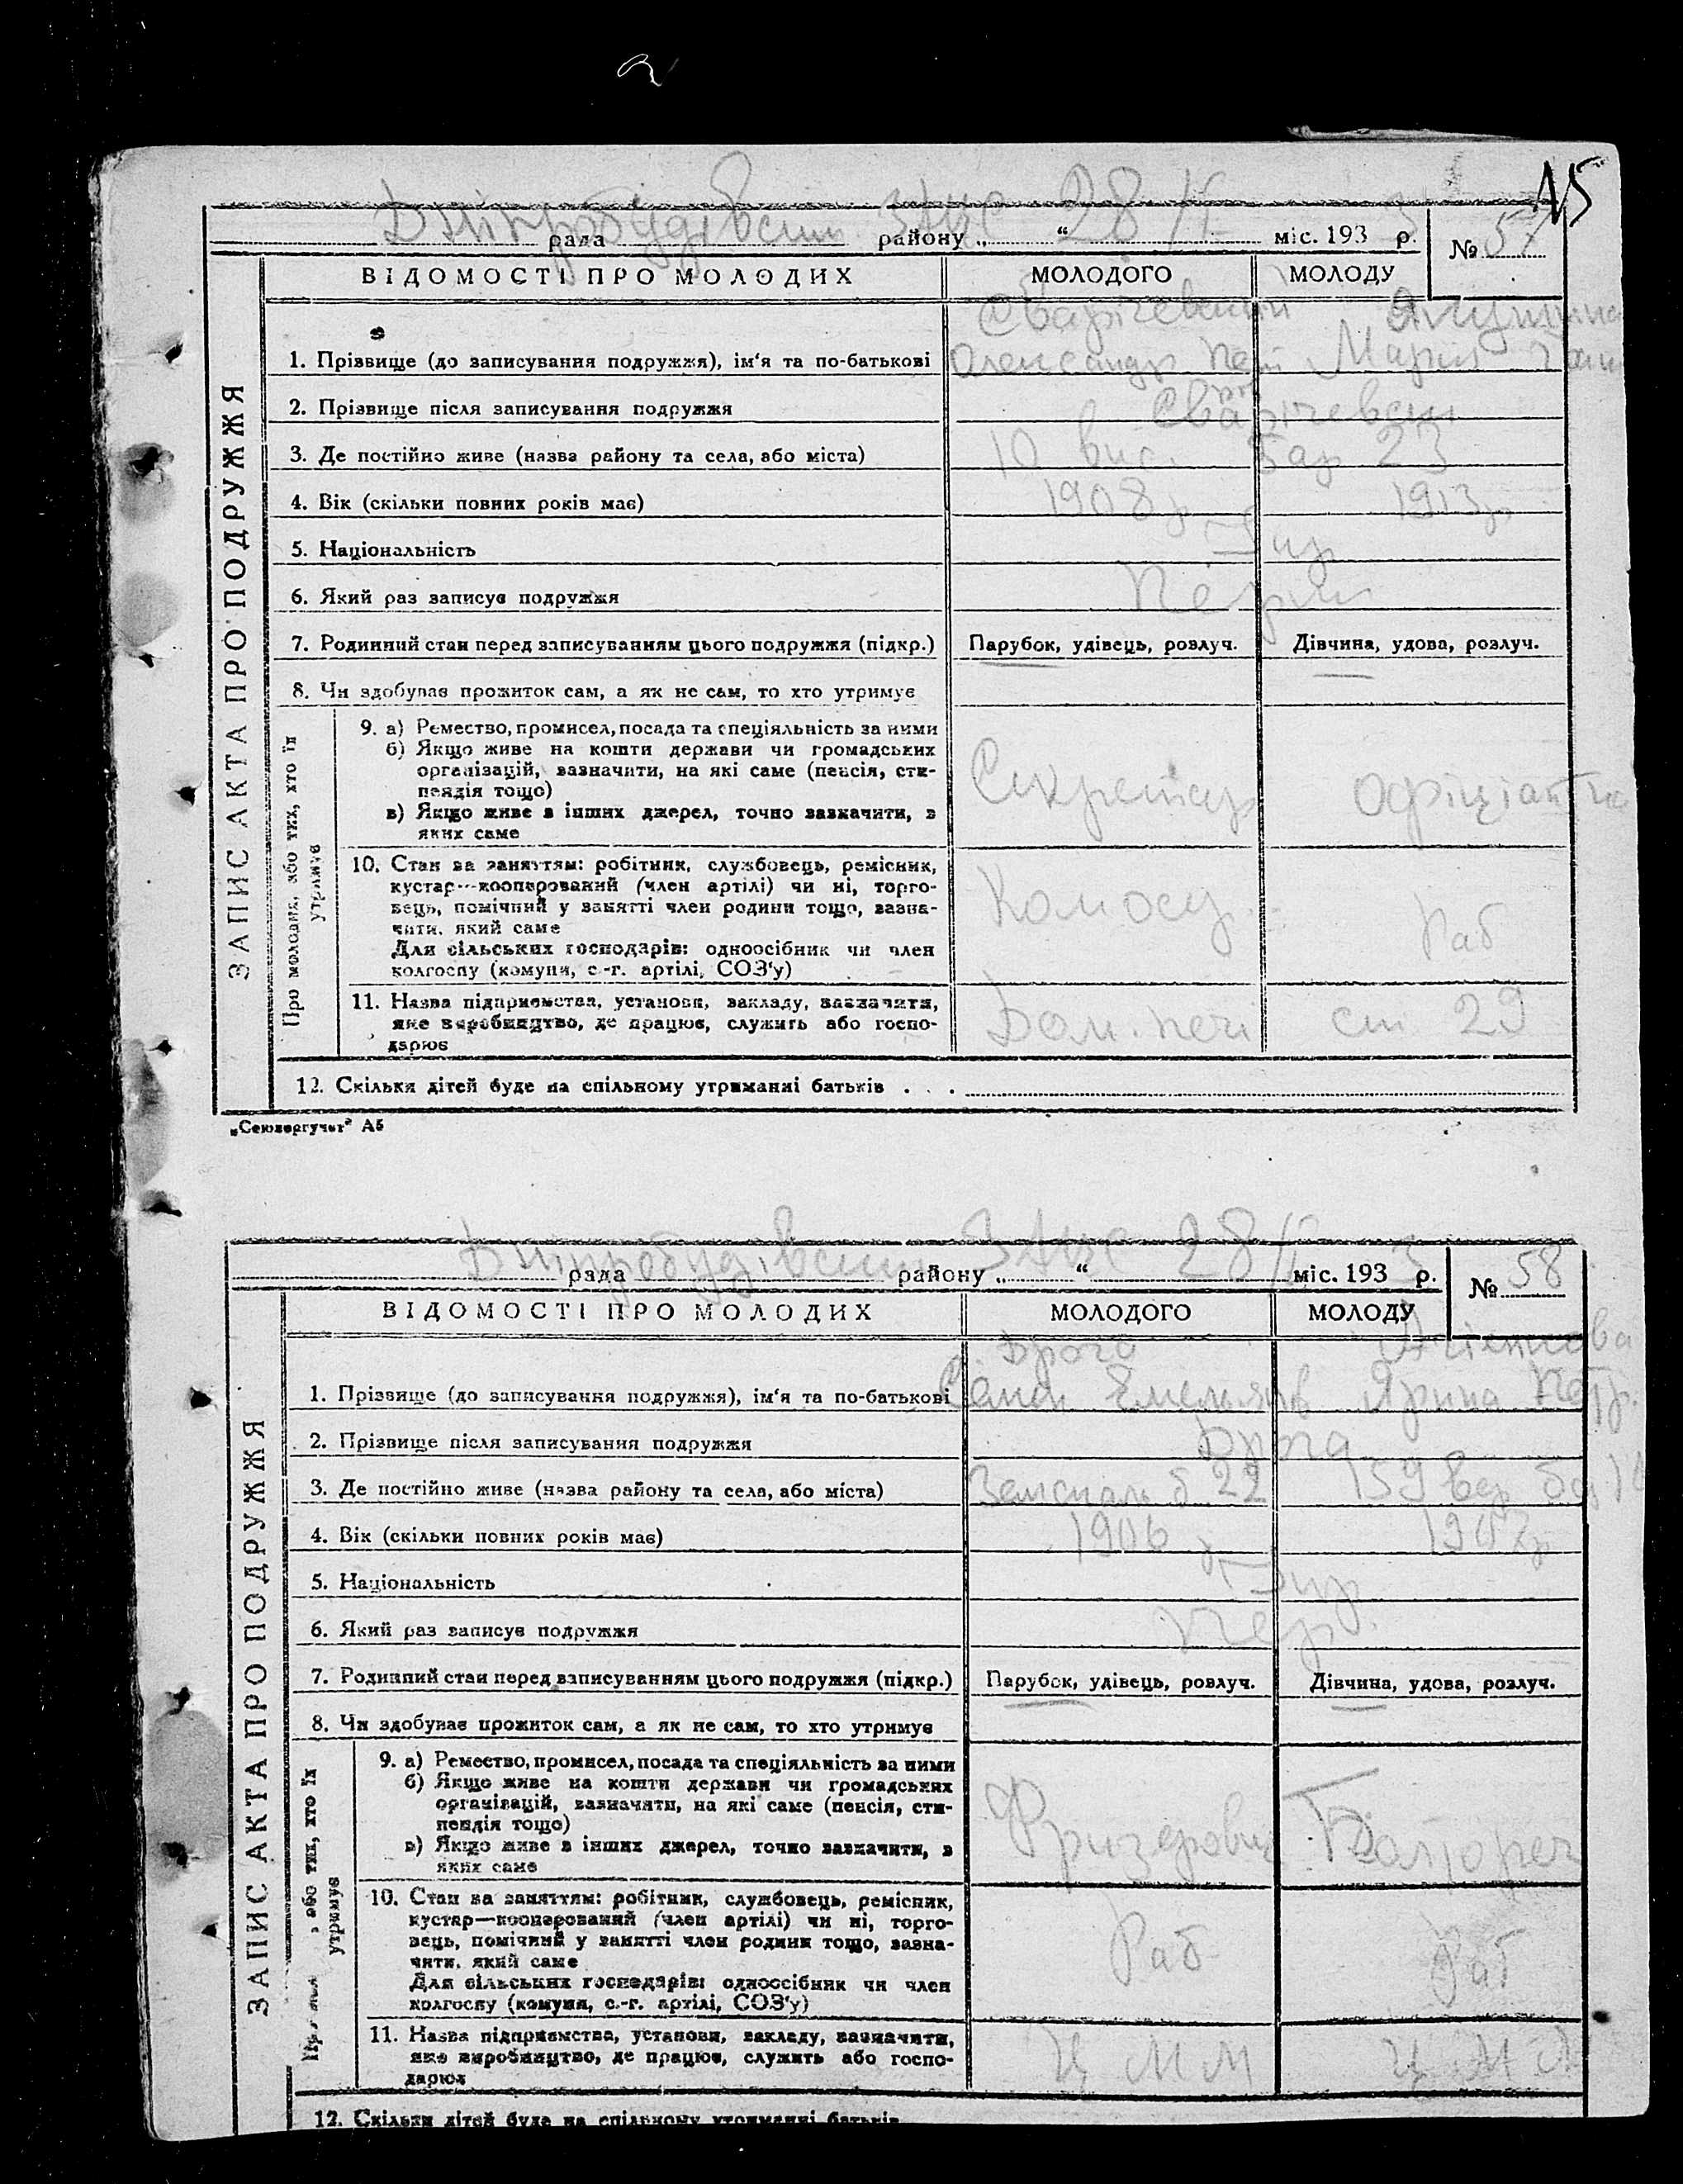 15
Дніпробудівськи ЗАГС 28/ІІ 3
рада району „ “ міс. 193 р. № 57
ВІДОМОСТІ ПРО МОЛОДИХ МОЛОДОГО МОЛОДУ
ЗАПИС АКТА ПРО ПОДРУЖЖЯ
Сварічевский
1. Прізвище (до записування подружжя), ім‘я та по-батькові Олександр Мария
2. Прізвище після записування подружжя Сварічевськи
3. Де постійно живе (назва району та села, або міста) 10 вис. Бар 23
4. Вік (скільки повних років має) 1908 р 1913 р
5. Національність Укр
6. Який раз записує подружжя Перши
7. Родинний стан перед записуванням цього подружжя (підкр.) Парубок, удівець, розлуч. Дівчина, удова, розлуч.
8. Чи здобуває прожиток сам, а як не сам, то хто утримує
Про молодих, або тих, хто їх
утримує
9. а) Ремество, промисел, посада та спеціяльність за ними
б) Якщо живе на кошти держави чи громадських
організацій, зазначити, на які саме (пенсія, сти-
пендія тощо)
Секретар офіціантка
в) Якщо живе з інших джерел, точно зазначити, з
яких саме
10. Стан за заняттям: робітник, службовець, ремісник,
кустар—кооперований (член артілі) чи ні, торго-
вець, помічний у занятті член родини тощо, зазна-
чити, який саме
Раб
Для сільських господарів: одноосібник чи член
колгоспу (комуни, с.-г. артілі, СОЗ‘у)
11. Назва підприємства, установи, закладу, зазначити,
яке виробництво, де працює, служить або госпо-
дарює
Дом. печі ст 29
12. Скільки дітей буде на спільному утриманні батьків . . .
„Союзоргучет“ А5
Дніпробудівськи ЗАГС 28/ІІ 3
рада району „ “ міс. 193 р. № 58
ВІДОМОСТІ ПРО МОЛОДИХ МОЛОДОГО МОЛОДУ
ЗАПИС АКТА ПРО ПОДРУЖЖЯ
Дрога
1. Прізвище (до записування подружжя), ім‘я та по-батькові Семен Емельянів Ярина Петр.
2. Прізвище після записування подружжя Дрога
3. Де постійно живе (назва району та села, або міста) б 22 159
4. Вік (скільки повних років має) 1906 р 1907 р
5. Національність Укр
6. Який раз записує подружжя Пер.
7. Родинний стан перед записуванням цього подружжя (підкр.) Парубок, удівець, розлуч. Дівчина, удова, розлуч.
8. Чи здобуває прожиток сам, а як не сам, то хто утримує
або тих, хто їх
утримує
9. а) Ремество, промисел, посада та спеціяльність за ними
б) Якщо живе на кошти держави чи громадських
організацій, зазначити, на які саме (пенсія, сти-
пендія тощо)
Фрізеровщ
в) Якщо живе з інших джерел, точно зазначити, з
яких саме
10. Стан за заняттям: робітник, службовець, ремісник,
кустар—кооперований (член артілі) чи ні, торго-
вець, помічний у занятті член родини тощо, зазна-
чити, який саме
Раб Раб
Для сільських господарів: одноосібник чи член
колгоспу (комуни, с.-г. артілі, СОЗ‘у)
11. Назва підприємства, установи, закладу, зазначити,
яке виробництво, де працює, служить або госпо-
дарює
Ц М М Ц М М
12. Скільки дітей буде на спільному утриманні батьків